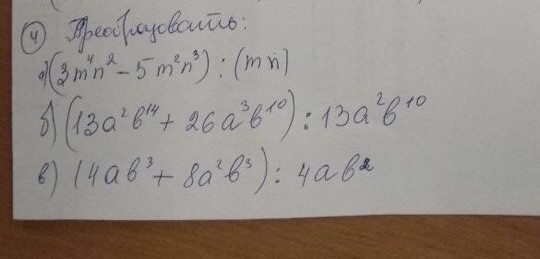 4 Преобразовать:
а) (3m⁴n² − 5m²n³) : (mn)
б) (13a²b¹⁴ + 26a³b¹⁰) : 13a²b¹⁰
в) (4ab³ + 8a²b³) : 4ab²